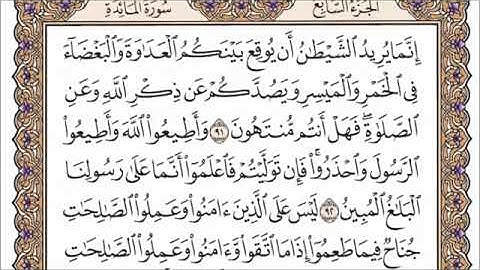 الجزء السابع سورة المائدة
إِنَّمَا يُرِيدُ الشَّيْطَٰنُ أَن يُوقِعَ بَيْنَكُمُ الْعَدَاوَةَ وَالْبَغْضَاءَ
فِي الْخَمْرِ وَالْمَيْسِرِ وَيَصُدَّكُمْ عَن ذِكْرِ اللَّهِ وَعَنِ
الصَّلَوٰةِ ۖ فَهَلْ أَنتُم مُّنتَهُونَ ٩١ وَأَطِيعُوا اللَّهَ وَأَطِيعُوا
الرَّسُولَ وَاحْذَرُوا ۚ فَإِن تَوَلَّيْتُمْ فَاعْلَمُوا أَنَّمَا عَلَىٰ رَسُولِنَا
الْبَلَٰغُ الْمُبِينُ ٩٢ لَيْسَ عَلَى الَّذِينَ ءَامَنُوا وَعَمِلُوا الصَّٰلِحَٰتِ
جُنَاحٌ فِيمَا طَعِمُوا إِذَا مَا اتَّقَوا وَّءَامَنُوا وَعَمِلُوا الصَّٰلِحَٰتِ